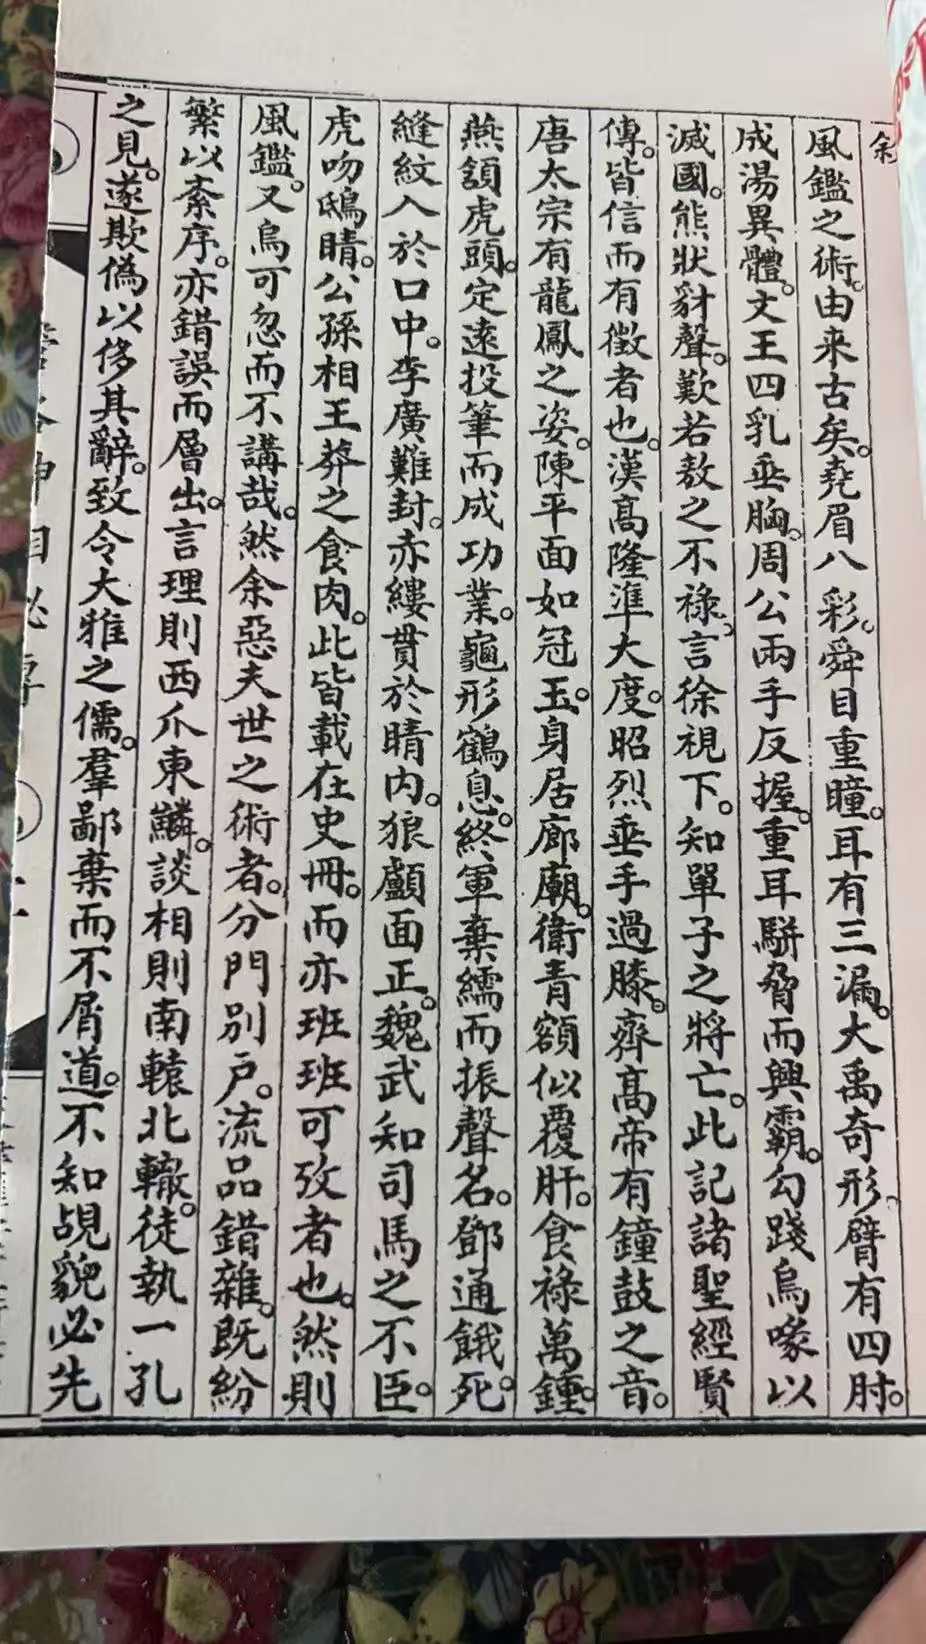 風鑑之術。由来古矣。堯眉八彩。舜目重瞳。耳有三漏。大禹奇形。臂有四肘。
成湯異體。文王四乳垂胸。周公兩手反握。重耳駢脅而興霸。勾踐烏喙以
滅國。熊狀豺聲。歎若敖之不祿。言徐視下。知單子之將亡。此記諸聖經賢
傳。皆信而有徵者也。漢高隆準大度。昭烈垂手過膝。齊高帝有鐘鼓之音。
唐太宗有龍鳳之姿。陳平面如冠玉。身居廊廟。衛青額似覆肝。食祿萬鍾。
燕頷虎頭。定遠投筆而成功業。龜形鶴息。終軍棄繻而振聲名。鄧通餓死。
縫紋入於口中。李廣難封。赤縷貫於睛内。狼顧面正。魏武知司馬之不臣。
虎吻鴟睛。公孫相王莽之食肉。此皆載在史冊。而亦班班可攷者也。然則
風鑑。又烏可忽而不講哉。然余惡夫世之術者。分門別戸。流品錯雜。既紛
繁以紊序。亦錯誤而層出。言理則西爪東鱗。談相則南轅北轍。徒執一孔
之見。遂欺偽以侈其辭。致令大雅之儒。羣鄙棄而不屑道。不知覘貌必先